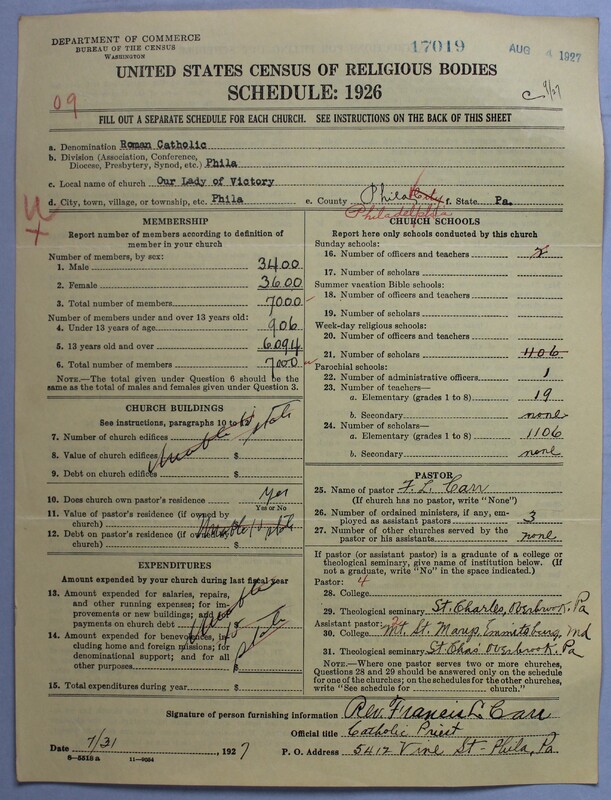 DEPARTMENT OF COMMERCE
BUREAU OF THE CENSUS
WASHINGTON
17019
AUG 4 1927
UNITED STATES CENSUS OF RELIGIOUS BODIES
SCHEDULE: 1926
C 9/27
09
FILL OUT A SEPARATE SCHEDULE FOR EACH CHURCH. SEE INSTRUCTIONS ON THE BACK OF THIS SHEET
a. Denomination Roman Catholic
b. Division (Association, Conference,
Diocese, Presbytery, Synod, etc.) Phila
c. Local name of church Our Lady of Victory
d. City, town, village, or township, etc. Phila e. County Phila City f. State Pa.
Philadelphia
U
X
MEMBERSHIP
Report number of members according to definition of
member in your church
Number of members, by sex:
1. Male 3400
2. Female 3600
3. Total number of members 7000
Number of members under and over 13 years old:
4. Under 13 years of age 906
5. 13 years old and over 6094
6. Total number of members 7000
NOTE.—The total given under Question 6 should be
the same as the total of males and females given under Question 3.
CHURCH BUILDINGS
See instructions, paragraphs 10 to 13
7. Number of church edifices
8. Value of church edifices $
9. Debt on church edifices $
Unable to state
10. Does church own pastor's residence Yes
Yes or No
11. Value of pastor's residence (if owned by
church) $
12. Debt on pastor's residence (if owned by
church) $
Unable to state
EXPENDITURES
Amount expended by your church during last fiscal year
13. Amount expended for salaries, repairs,
and other running expenses; for im-
provements or new buildings; and for
payments on church debt $
14. Amount expended for benevolences, in-
cluding home and foreign missions; for
denominational support; and for all
other purposes $
Unable to state
15. Total expenditures during year $
CHURCH SCHOOLS
Report here only schools conducted by this church
Sunday schools:
16. Number of officers and teachers 2
17. Number of scholars
Summer vacation Bible schools:
18. Number of officers and teachers
19. Number of scholars
Week-day religious schools:
20. Number of officers and teachers
21. Number of scholars 1106
Parochial schools:
22. Number of administrative officers 1
23. Number of teachers—
a. Elementary (grades 1 to 8) 19
b. Secondary none
24. Number of scholars—
a. Elementary (grades 1 to 8) 1106
b. Secondary none
PASTOR
25. Name of pastor F. L. Carr
(If church has no pastor, write "None")
26. Number of ordained ministers, if any, em-
ployed as assistant pastors 3
27. Number of other churches served by the
pastor or his assistants none
If pastor (or assistant pastor) is a graduate of a college or
theological seminary, give name of institution below. (If
not a graduate, write "No" in the space indicated.)
Pastor: 4
28. College
29. Theological seminary St. Charles, Overbrook, Pa
Assistant pastor:
30. College Mt. St. Marys, Emmitsburg, Md
31. Theological seminary St. Chas' Overbrook. Pa
NOTE.—Where one pastor serves two or more churches,
Questions 28 and 29 should be answered only on the schedule
for one of the churches; on the schedules for the other churches,
write "See schedule for church."
Signature of person furnishing information Rev. Francis L. Carr
Official title Catholic Priest
Date 7/31, 1927 P. O. Address 5412 Vine St - Phila, Pa.
6—5518 a 11—9034